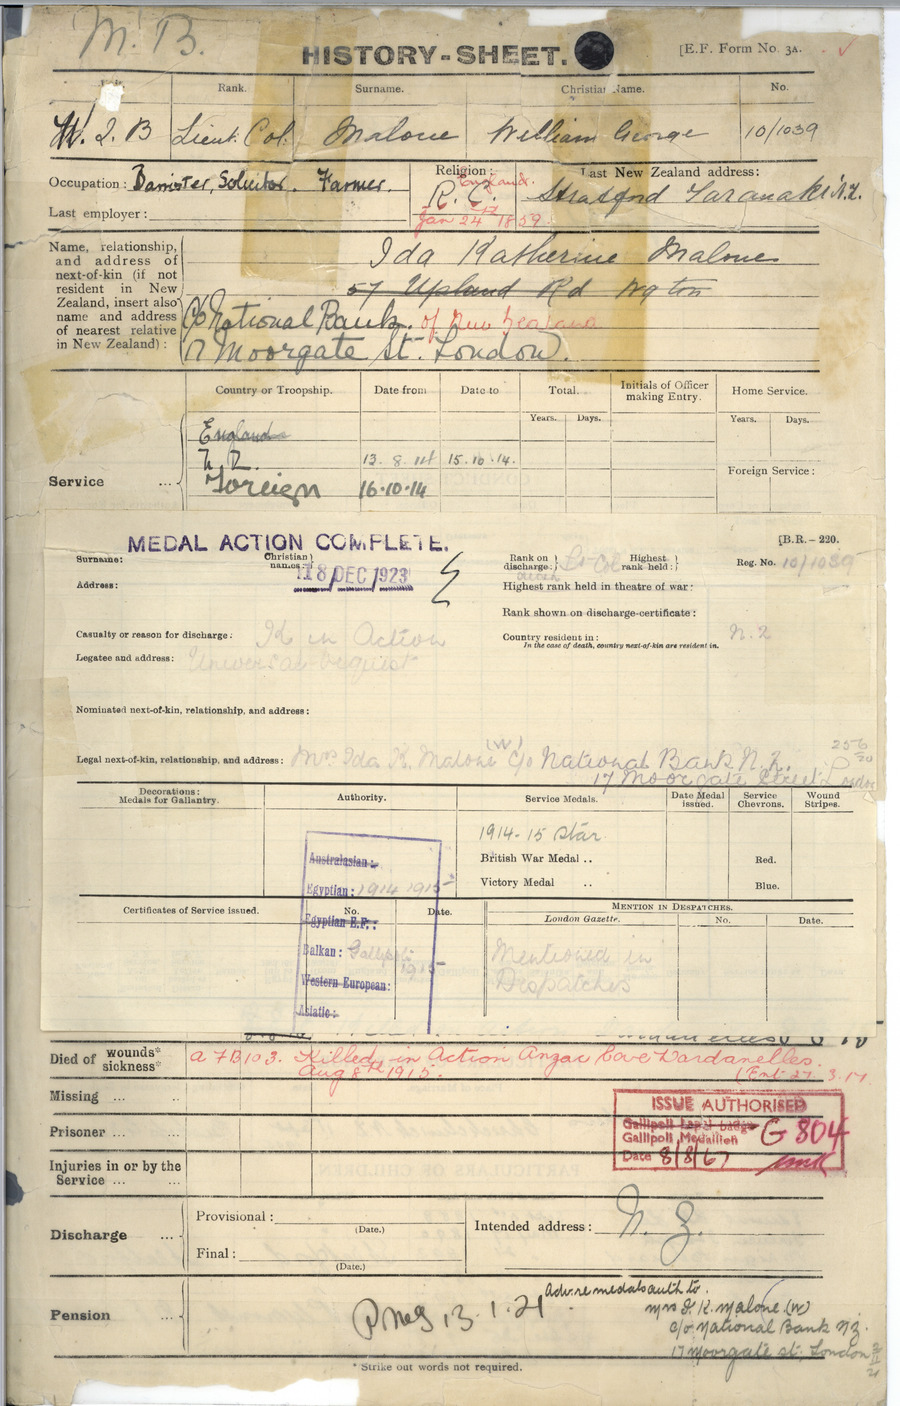 M. B.
HISTORY-SHEET.
[E.F. Form No. 3A.
Rank.
Surname.
Christian Name.
No.
W. I. B
Lieut. Col.
Malone
William George
10/1039
Occupation: Barrister, Solicitor. Farmer.
Religion:
England.
R. C.
Jan 24 1859
Last New Zealand address:
Stratford Taranaki N.Z.
Last employer:
Name, relationship,
and address of
next-of-kin (if not
resident in New
Zealand, insert also
name and address
of nearest relative
in New Zealand):
Ida Katherine Malone
57 Upland Rd Wgton
C/o National Bank. of New Zealand
17 Moorgate St. London.
Country or Troopship.
Date from
Date to
Total.
Initials of Officer
making Entry.
Home Service.
Years.
Days.
Years.
Days.
Foreign Service:
Service ...
England
N. Z.
13. 8. 14
15.10.14.
Foreign
16.10.14
MEDAL ACTION COMPLETE.
[B.R.–220.
Surname:
Christian
names:
18 DEC 1923
Rank on
discharge:
death
Lt-Col
Highest
rank held:
Reg. No. 10/1039
Address:
Highest rank held in theatre of war:
Rank shown on discharge-certificate:
Casualty or reason for discharge: K in Action
Country resident in: N.Z
In the case of death, country next-of-kin are resident in.
Legatee and address: Universal bequest
Nominated next-of-kin, relationship, and address:
Legal next-of-kin, relationship, and address: Mrs Ida K. Malone (W) c/o National Bank N.Z.
17 Moorgate Street London
256
20
Decorations:
Medals for Gallantry.
Authority.
Service Medals.
Date Medal
issued.
Service
Chevrons.
Wound
Stripes.
1914-15 Star
British War Medal ..
Red.
Victory Medal ..
Blue.
Australasian:
Egyptian: 1914 1915
Egyptian E.F.:
Balkan: Gallipoli
1915
Western European:
Asiatic:
Certificates of Service issued.
No.
Date.
MENTION IN DESPATCHES.
London Gazette.
No.
Date.
Mentioned in
Despatches
Died of wounds*
sickness*
A F B103. Killed in Action Anzac Cove Dardanelles.
Aug 8th 1915.
(Ent 27.3.17
Missing ... ..
Prisoner ... ...
Injuries in or by the
Service ... ...
ISSUE AUTHORISED
Gallipoli Lapel badge
Gallipoli Medallion
G 804
Date 8/8/67
Discharge ...
Provisional:
(Date.)
Final:
(Date.)
Intended address: N. Z.
Pension ...
13.1.21.
Adv. re medals auth to
Mrs I. K. Malone (W)
c/o National Bank NZ.
17 Moorgate St. London
* Strike out words not required.